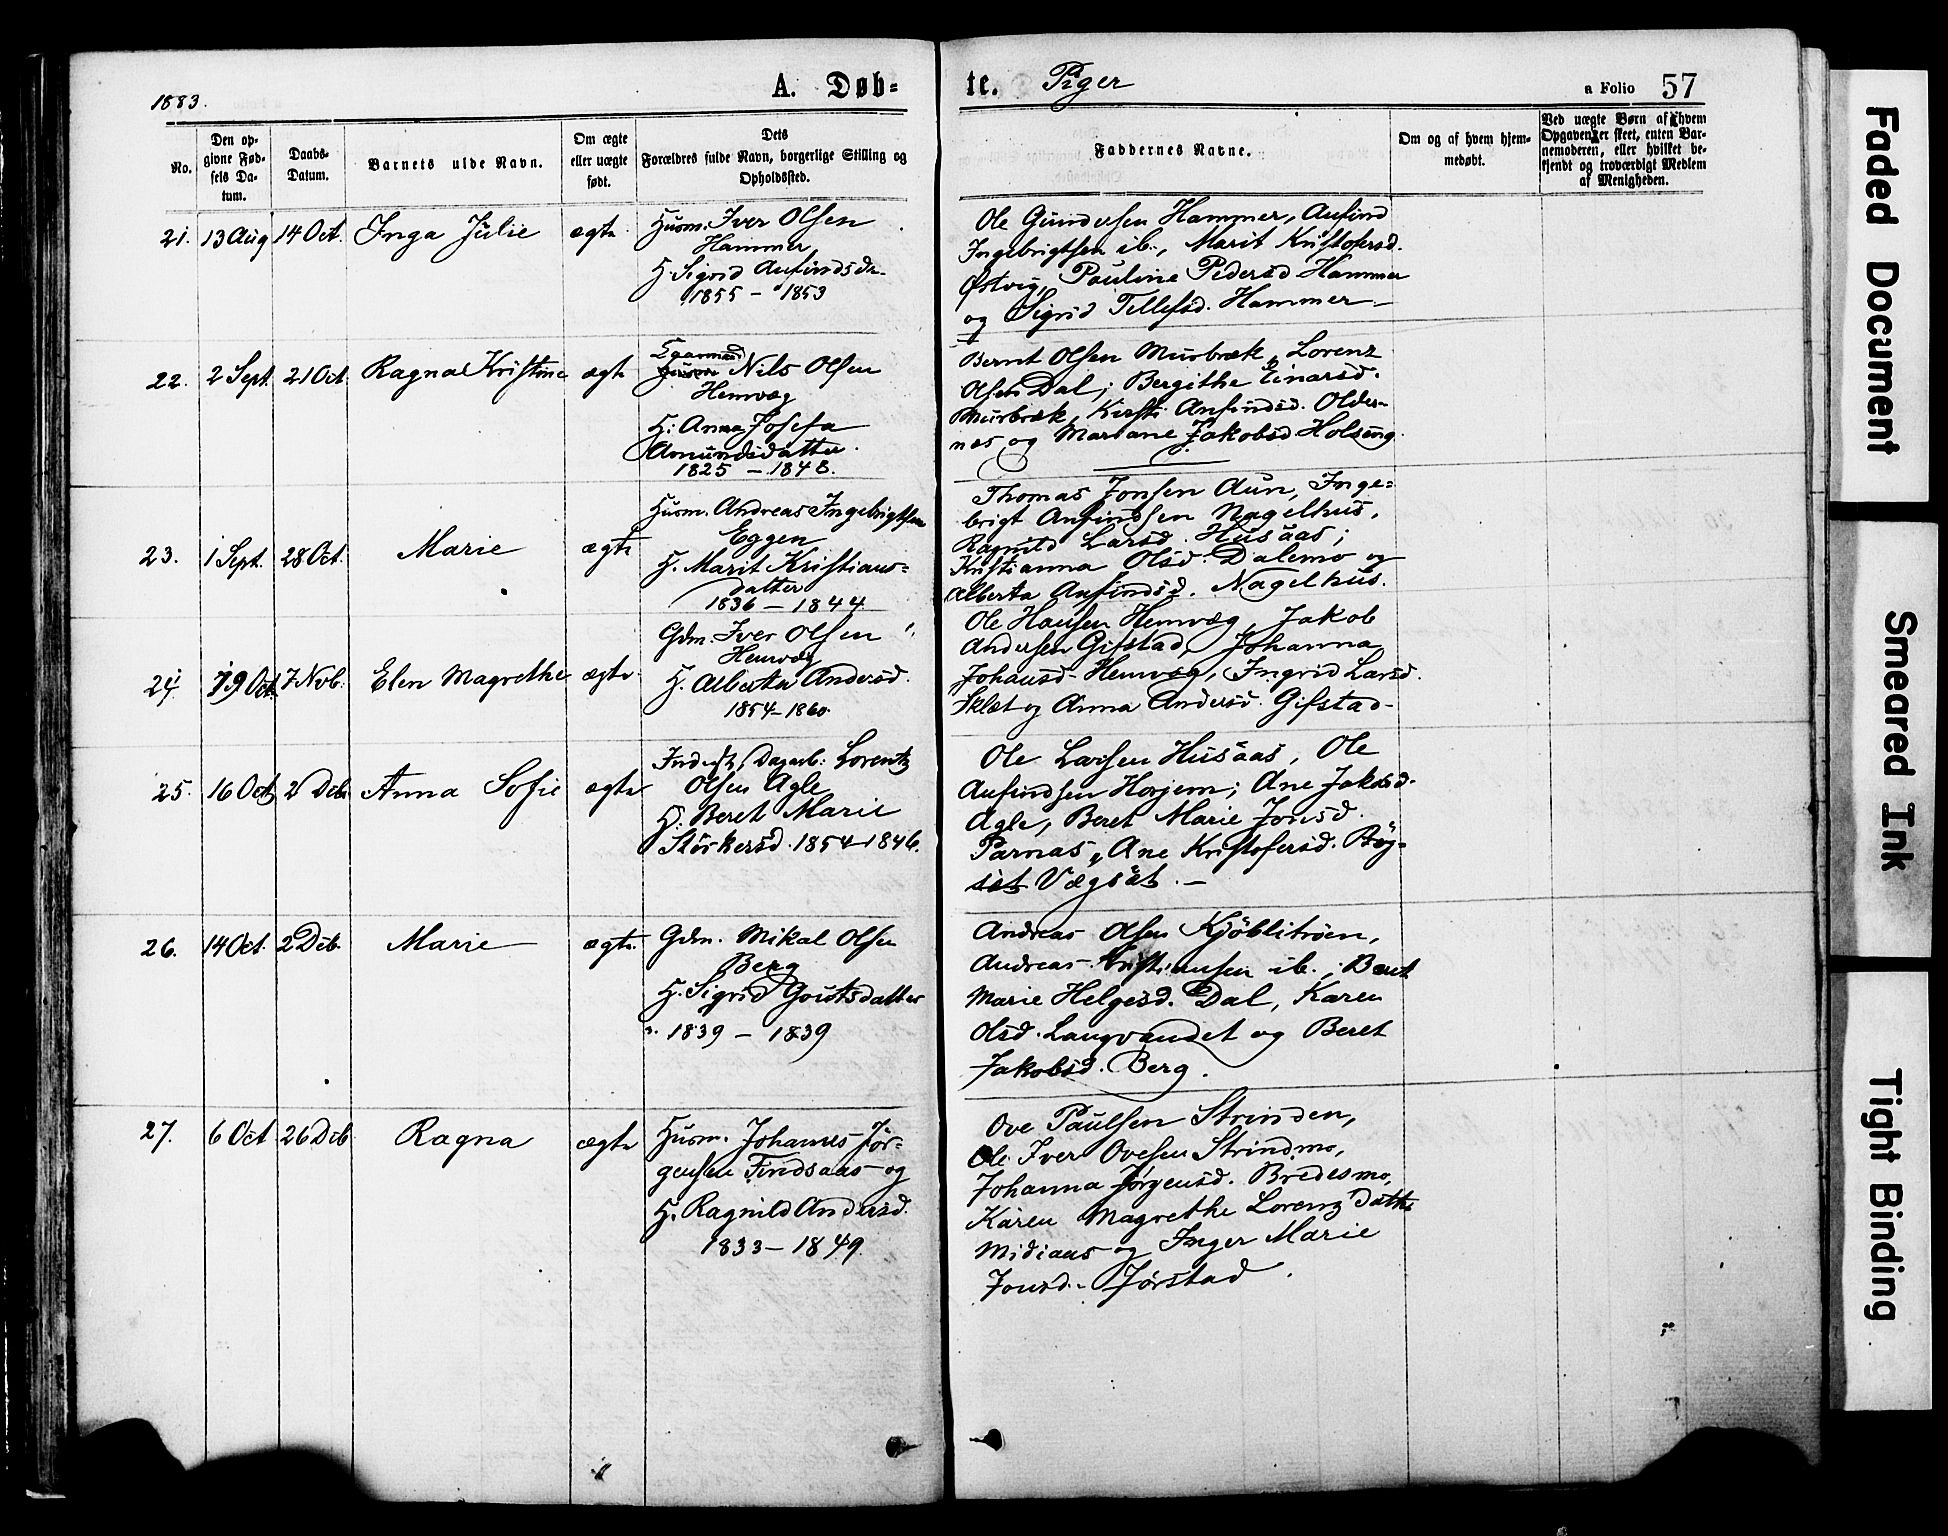 1883.
A. Døb-
te. Piger
a Folio 57
No.
Den op-
givne Fød-
sels Da-
tum.
Daabs-
Datum.
Barnets fulde Navn.
Om ægte
eller uægte
født.
Dets
Forældres fulde Navn, borgerlige Stilling og
Opholdssted.
Faddernes Navne.
Om og af hvem hjem-
medøbt.
Ved uægte Børn af hvem
Opgaven er skeet, enten Bar-
nemoderen, eller hvilket be-
kjendt og troværdigt Medlem
af Menigheden.
21. 13 Aug 14 Oct. Inga Julie ægte
Husm. Iver Olsen
Hammer
H. Sigrid Anfindsdr.
1855 - 1853
Ole Gundersen Hammer, Anfind
Ingebrigtsen ib., Marit Kristofersd.
Østvig, Pauline Pedersd Hammer
og Sigrid Tellefsd. Hammer -
22. 2 Sept. 21 Oct. Ragna Kristine ægte
Nils Olsen
Hemvæg
H: Anna Josefa
Amundsdatter.
1825 - 1848.
Bernt Olsen Murbræk, Lorenz
Olsen Dal; Bergithe Einarsd.
Murbræk, Kirsti Anfindsd. Older-
næs og Mariane Jakobsd Holsing.
23. 1 Sept. 28 Oct. Marie ægte
Husm. Andreas Ingebrigtsen
Eggen
H. Marit Kristians-
datter
1836 - 1844
Thomas Jonsen Aun, Inge-
brigt Anfindsen Nagelhus,
Ragnild Larsd. Husaas;
Kristianna Olsd. Dalemo og
Alberta Anfindsd. Nagelhus.
24. 19 Oct. 7 Nvb. Elen Magrethe ægte
Gdm. Iver Olsen
Hemvæg
H. Alberta Andersd.
1854-1860
Ole Hansen Hemvæg, Jakob
Andersen Gifstad, Johanna
Johansd. Hemvæg, Ingrid Larsd.
Sklæt og Anna Andersd. Gifstad-
25. 16 Oct 2 Deb. Anna Sofie ægte
Inderst, Dagarb: Lorentz
Olsen Agle
H: Beret Marie
Størkersd. 1854-1846.
Ole Larsen Husaas, Ole
Anfindsen Horjem; Ane Jakobsd.
Agle, Beret Marie Jonsd.
Parnas, Ane Kristofersd. Bøg-
set Vægset. -
26. 14 Oct 2 Deb. Marie ægte
Gdm. Mikal Olsen
Berg
H. Sigrid Goutsdatter
1839 - 1839
Andreas Olsen Kjøblitrøen,
Andreas Kristiansen ib.; Beret
Marie Helgesd. Dal, Karen
Olsd. Langvandet og Beret
Jakobsd. Berg.
27. 6 Oct 26 Deb Ragna ægte
Husm. Johannes Jør-
gensen Findsaas og
H. Ragnild Andersd.
1833 - 1849.
Ove Paulsen Strinden,
Ole Iver Ovesen Strindmo,
Johanna Jørgensd. Bredesmo,
Karen Magrethe Lorenz datter
Midiaas og Inger Marie
Jonsd. Jørstad.
Faded Document
Smeared Ink
Tight Binding